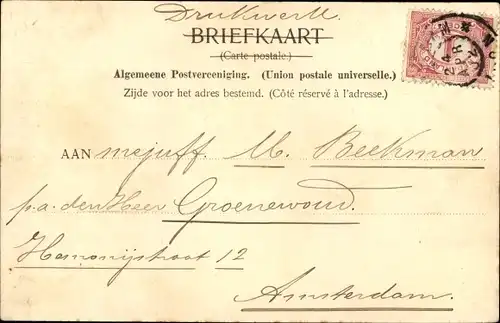 Drukwerk
BRIEFKAART
(Carte postale.)
Algemeene Postvereeniging. (Union postale universelle.)
Zijde voor het adres bestemd. (Côté réservé à l'adresse.)
AAN mejuff. M. Beekman
p.a. den Heer Groenewoud.
Harmonijstraat 12
Amsterdam.